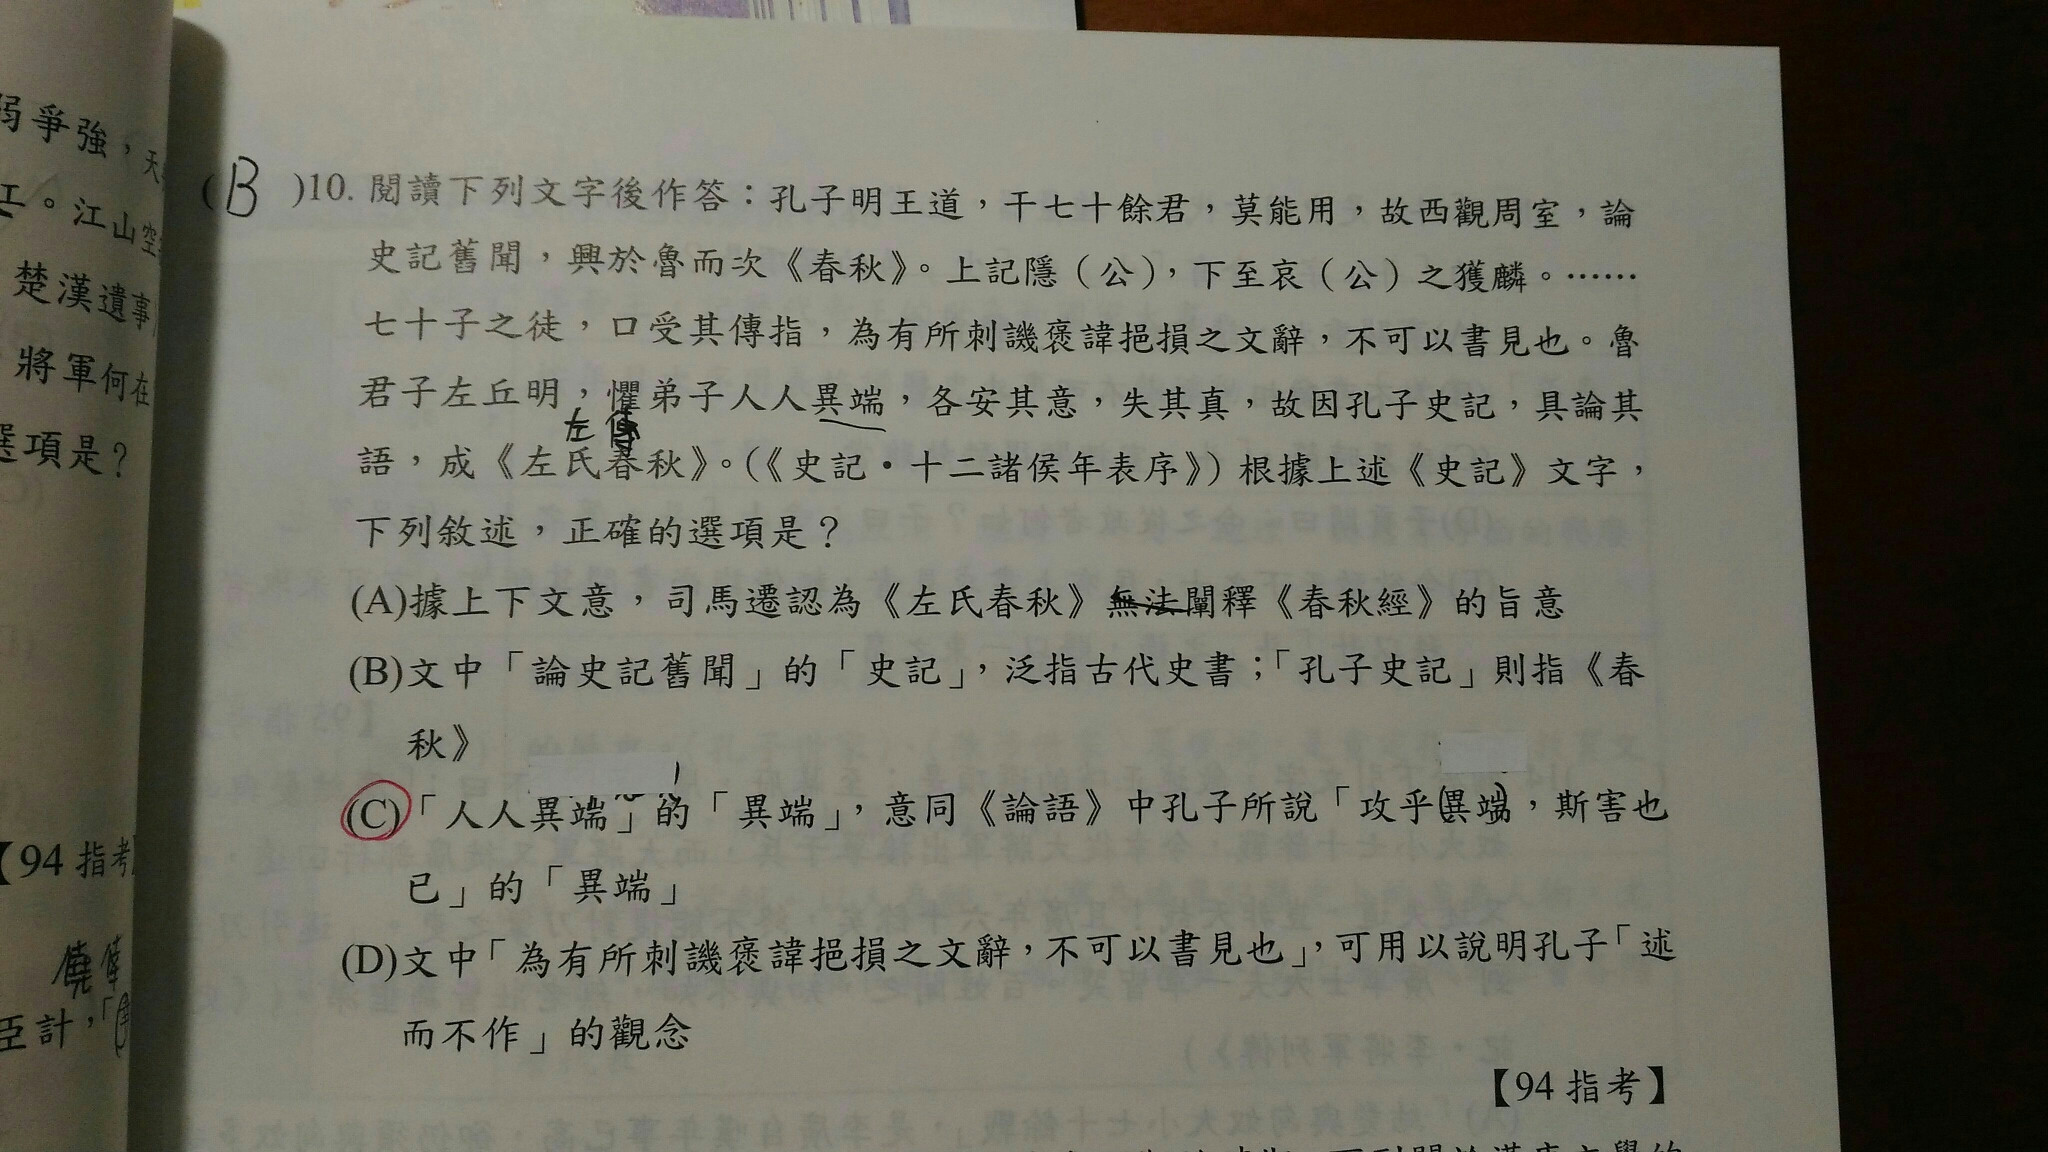 弱爭強，天
工。江山空
楚漢遺事
將軍何在
選項是？
【94 指考】
臣計，「
( B )10. 閱讀下列文字後作答：孔子明王道，干七十餘君，莫能用，故西觀周室，論
史記舊聞，興於魯而次《春秋》。上記隱（公），下至哀（公）之獲麟。……
七十子之徒，口受其傳指，為有所刺譏褒諱挹損之文辭，不可以書見也。魯
君子左丘明，懼弟子人人異端，各安其意，失其真，故因孔子史記，具論其
左傳
語，成《左氏春秋》。(《史記•十二諸侯年表序》) 根據上述《史記》文字，
下列敘述，正確的選項是？
(A)據上下文意，司馬遷認為《左氏春秋》無法闡釋《春秋經》的旨意
(B)文中「論史記舊聞」的「史記」，泛指古代史書；「孔子史記」則指《春
秋》
(C)「人人異端」的「異端」，意同《論語》中孔子所說「攻乎異端，斯害也
已」的「異端」
(D)文中「為有所刺譏褒諱挹損之文辭，不可以書見也」，可用以說明孔子「述
而不作」的觀念
【94 指考】